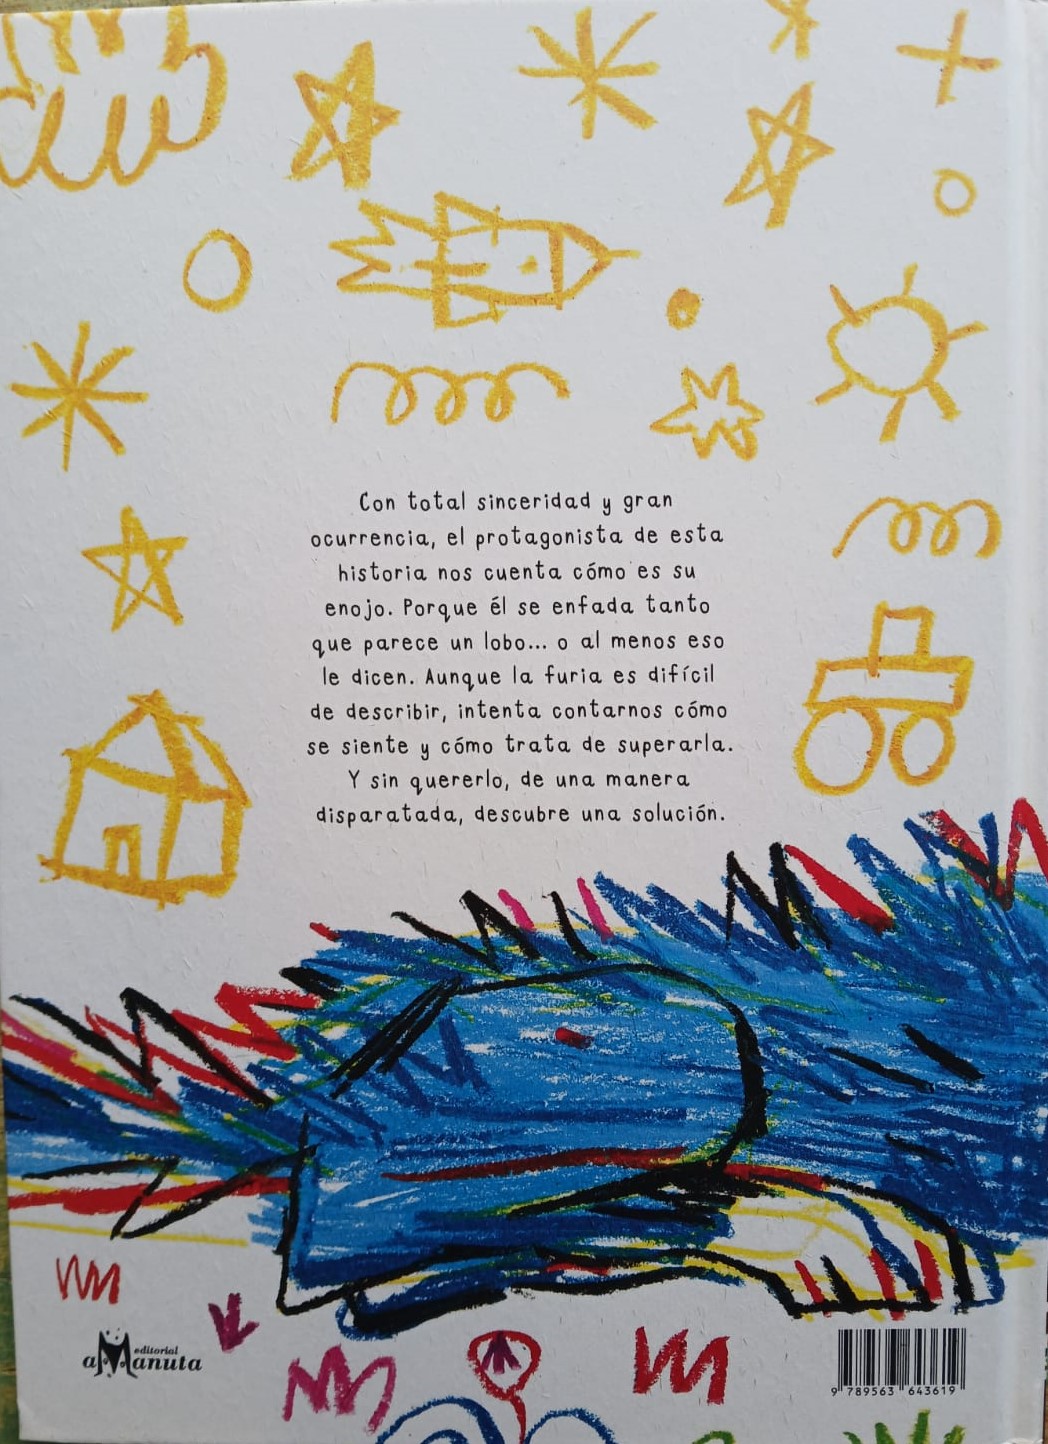 Con total sinceridad y gran
ocurrencia, el protagonista de esta
historia nos cuenta cómo es su
enojo. Porque él se enfada tanto
que parece un lobo... o al menos eso
le dicen. Aunque la furia es difícil
de describir, intenta contarnos cómo
se siente y cómo trata de superarla.
Y sin quererlo, de una manera
disparatada, descubre una solución.
editorial
aManuta
9 789563 643619